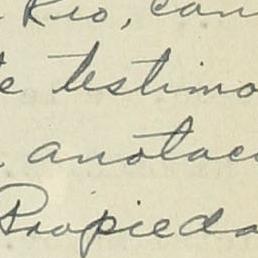 Rio, con
e testimo
anotac
Propieda